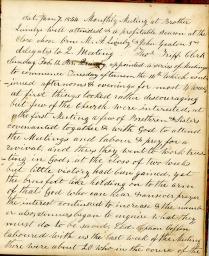 Sat. Jan 7 1854 Monthly Meeting at Brother
Lundys well attended & a profitable season at the
close when Brn. M. A. Lundy & John Yealon Jr
delegates to 2 Meeting
Sunday Feb. 12 appointed a series of Meetings
to commence Tuesday afternoon the 14th which cont-
inued afternoons & evenings for most 4 weeks
at first things looked rather discouraging
but few of the Church were interested at
the first Meeting a few of Brethren & Sisters
covenanted together & with God to attend
the Meetings and labour & pray for a
revival, and they they went to work trus-
ting in God, at the close of two weeks
but little victory had been gained, yet
the people like holding on to the arm
of that God who can hear & answers prayer
the interest continued to increase & the mourn-
er also, sinners began to inquire what they
must do to be saved,
laboured with us the last week of the Meeting
there were about 20 who in the course of the